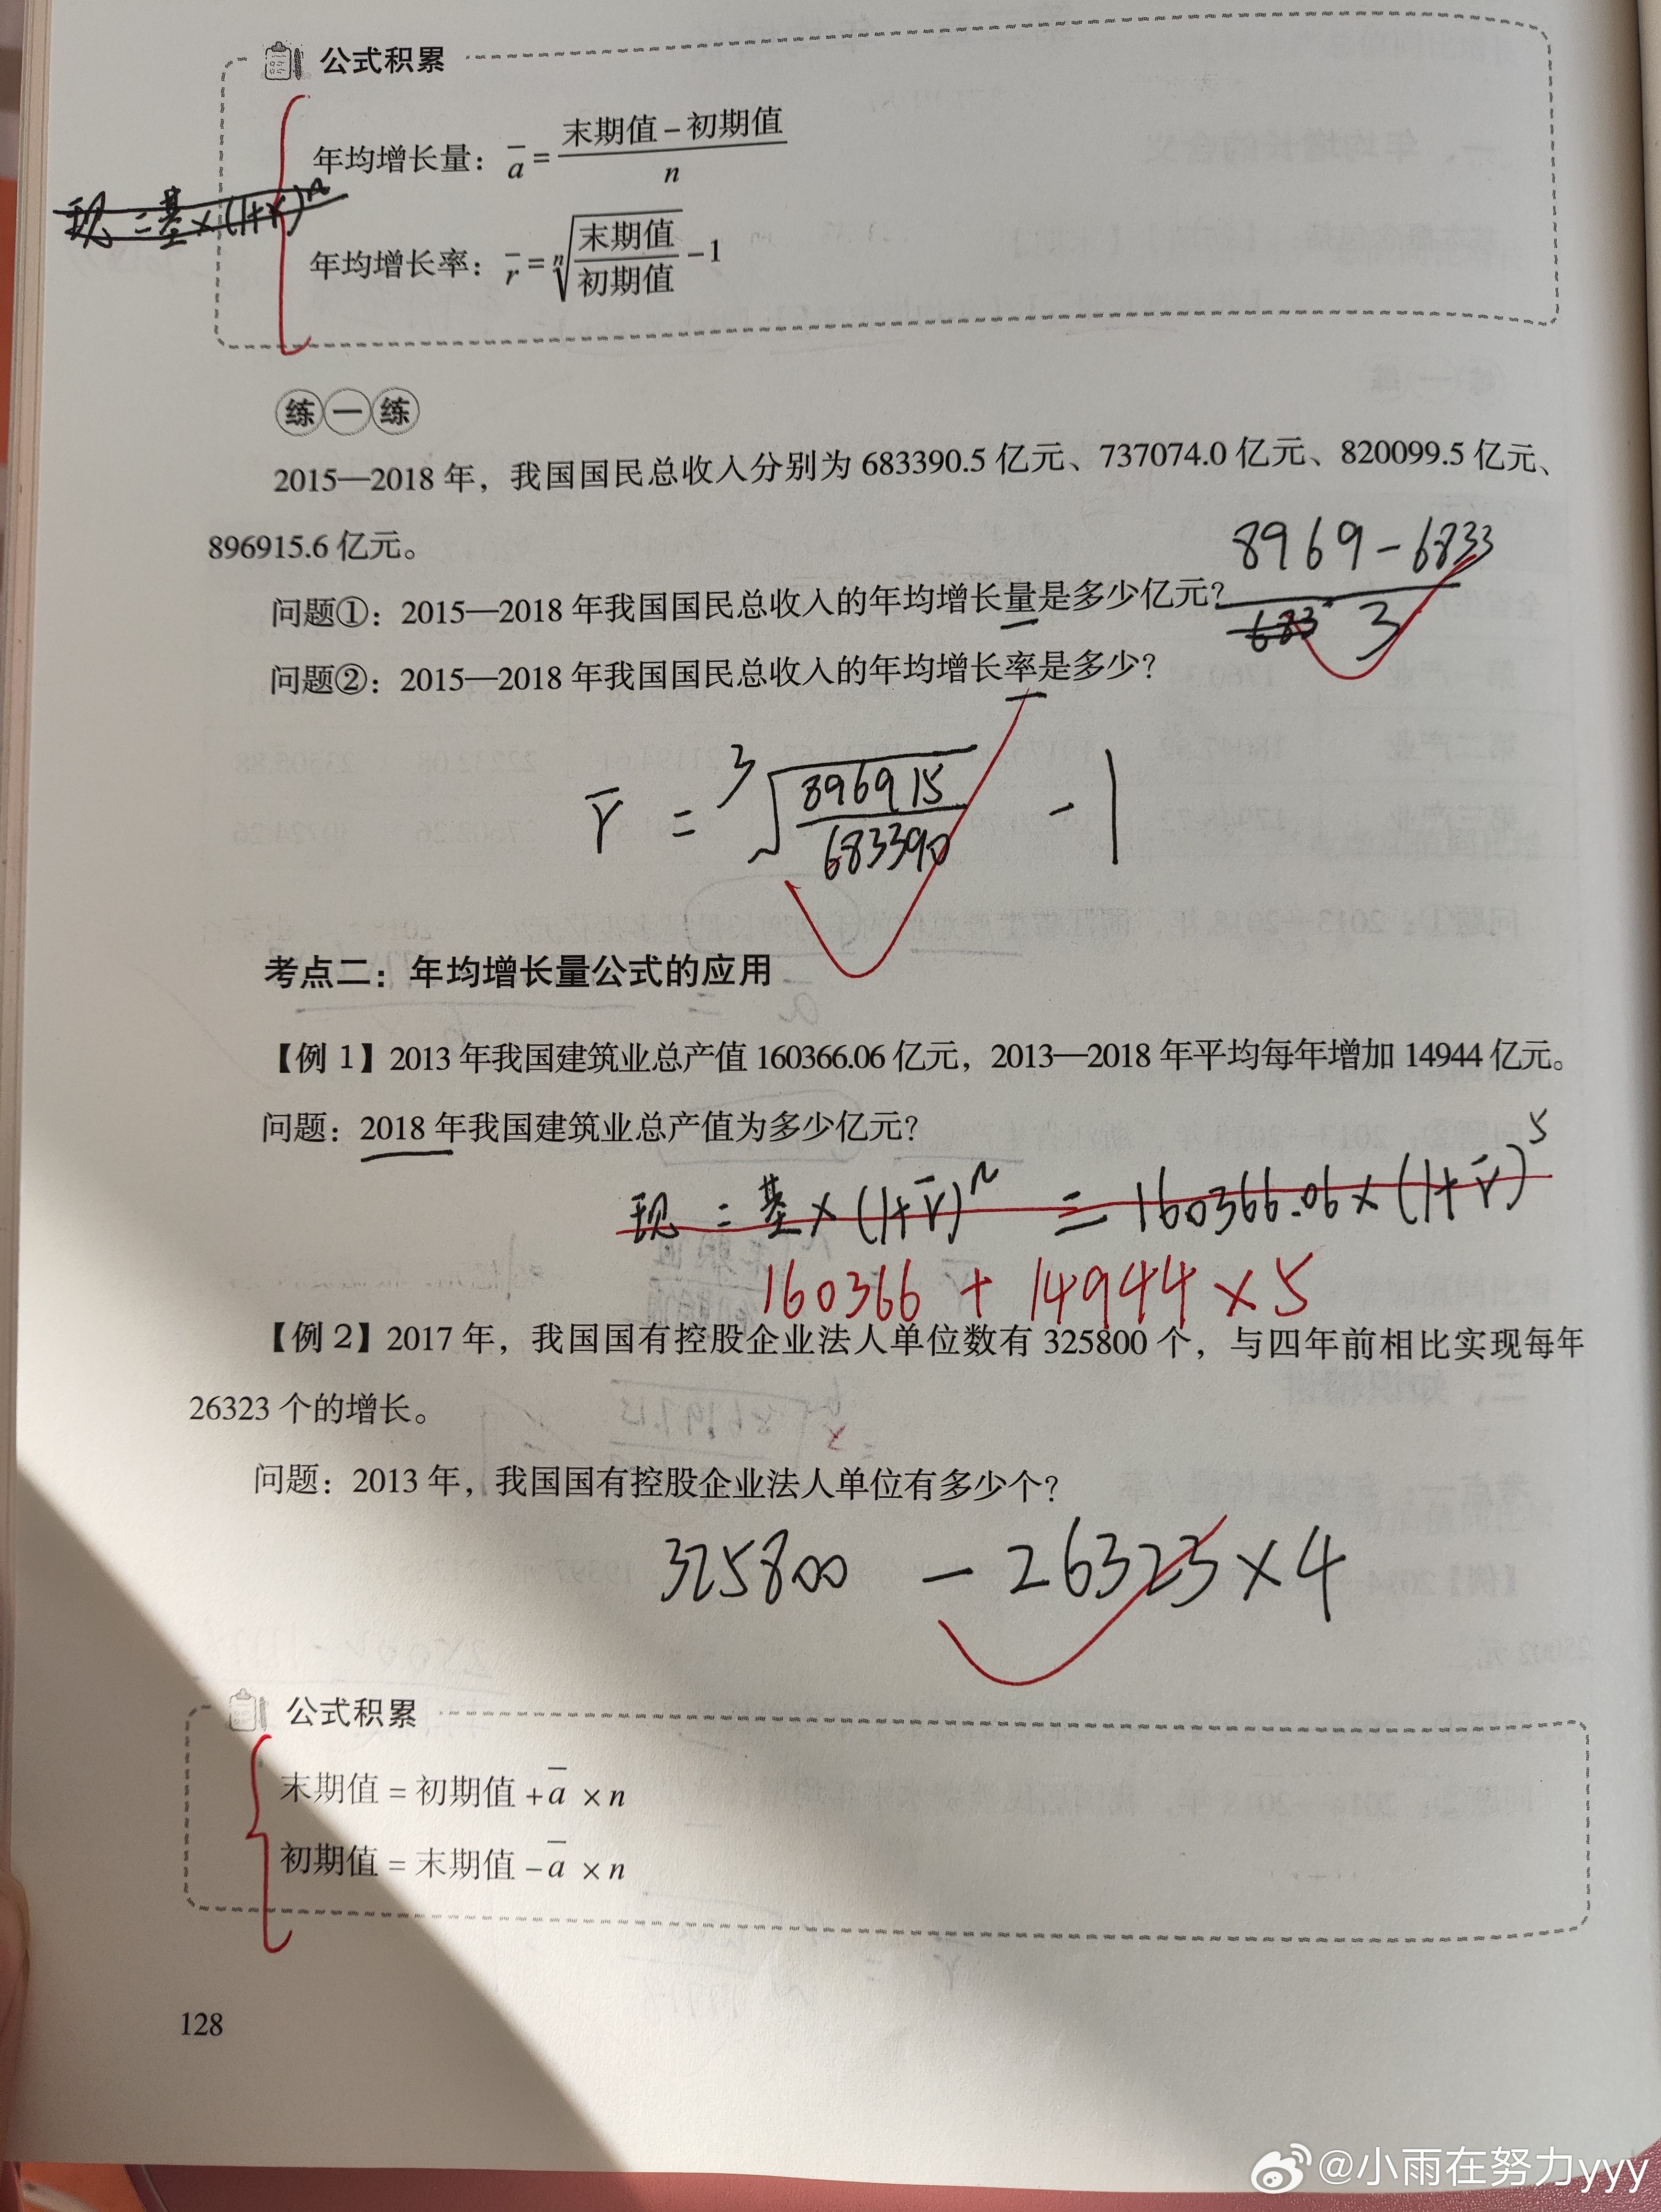 公式积累
年均增长量：a̅ = (末期值 - 初期值) / n
现 = 基 × (1+r)ⁿ
年均增长率：r̅ = ⁿ√(末期值 / 初期值) - 1
练一练
2015—2018 年，我国国民总收入分别为 683390.5 亿元、737074.0 亿元、820099.5 亿元、
896915.6 亿元。
8969 - 6833
问题①：2015—2018 年我国国民总收入的年均增长量是多少亿元？
683 3
问题②：2015—2018 年我国国民总收入的年均增长率是多少？
r̅ = ³√(896915 / 683390) - 1
考点二：年均增长量公式的应用
【例 1】2013 年我国建筑业总产值 160366.06 亿元，2013—2018 年平均每年增加 14944 亿元。
问题：2018 年我国建筑业总产值为多少亿元？
现 = 基 × (1+r̅)ⁿ = 160366.06 × (1+r̅)⁵
160366 + 14944 × 5
【例 2】2017 年，我国国有控股企业法人单位数有 325800 个，与四年前相比实现每年
26323 个的增长。
问题：2013 年，我国国有控股企业法人单位有多少个？
325800 - 26323 × 4
公式积累
末期值 = 初期值 + a̅ × n
初期值 = 末期值 - a̅ × n
128
@小雨在努力yyy